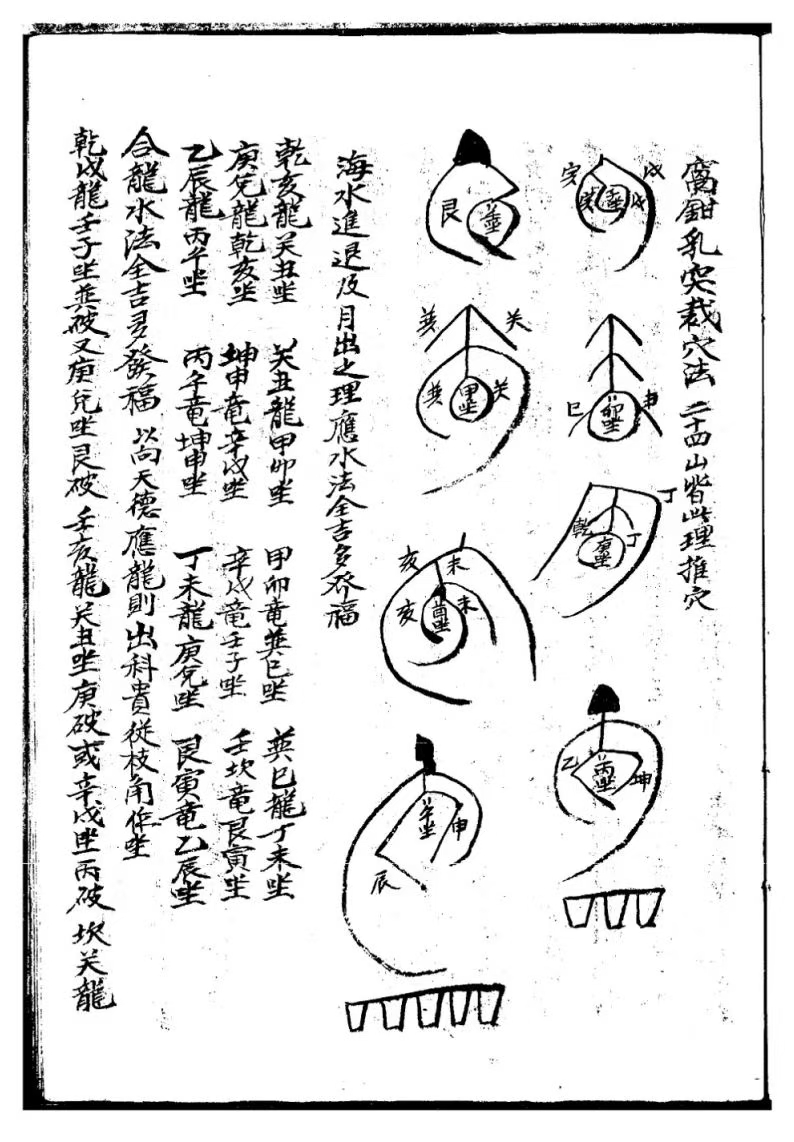 窩鉗乳突裁穴法 二十四山皆此理推穴
戌
亥
戌
卯坐
巳
丁
丁
乾
庚坐
乙
丙坐
坤
艮
巽
关
巽
甲坐
关
亥
未
亥
酉坐
未
午坐
申
辰
海水進退及月出之理應水法全吉多發福
乾亥龍关丑坐 关丑龍甲卯坐 甲卯竜巽巳坐 巽巳龍丁未坐
庚兌龍乾亥坐 坤申竜辛戌坐 辛戌竜壬子坐 壬坎竜艮寅坐
乙辰龍丙午坐 丙午竜坤申坐 丁未龍庚兌坐 艮寅竜乙辰坐
合龍水法全吉多發福 以向天德應龍則出科貴従枝角作坐
乾戌龍壬子坐巽破又庚兌坐艮破 壬亥龍关丑坐庚破或辛戌坐丙破 坎关龍